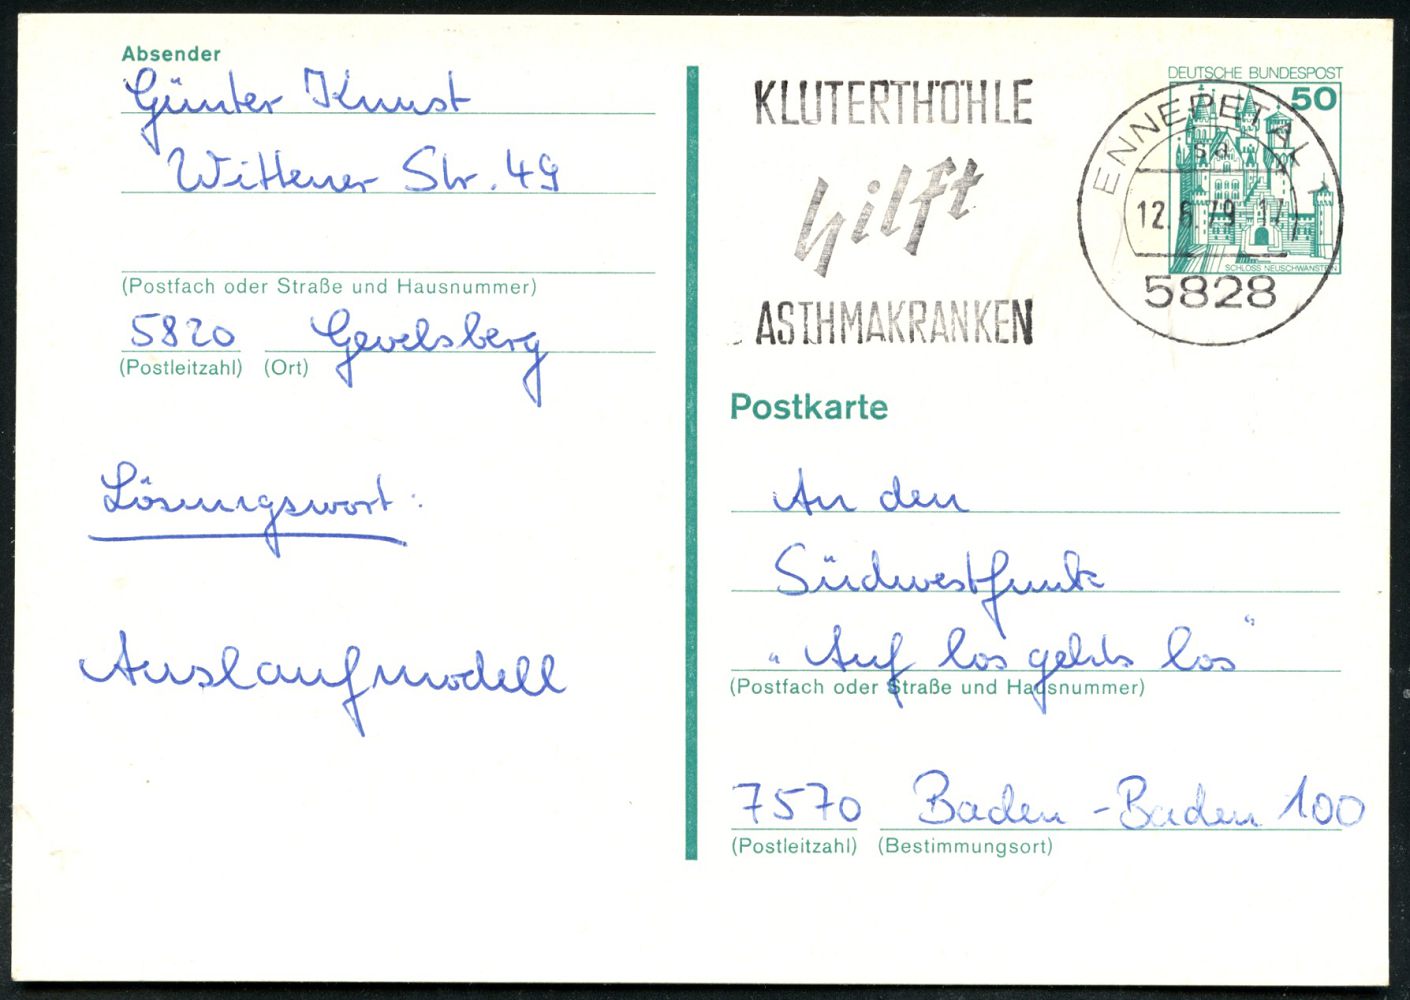 Absender
Günter Kunst
Wittener Str. 49
(Postfach oder Straße und Hausnummer)
5820 Gevelsberg
(Postleitzahl) (Ort)
Lösungswort:
Auslaufmodell
KLUTERTHÖHLE
hilft
ASTHMAKRANKEN
DEUTSCHE BUNDESPOST
50
SCHLOSS NEUSCHWANSTEIN
ENNEPETAL 1
sa
12.5.79-17
5828
Postkarte
An den
Südwestfunk
"Auf los gehts los"
(Postfach oder Straße und Hausnummer)
7570 Baden-Baden 100
(Postleitzahl) (Bestimmungsort)